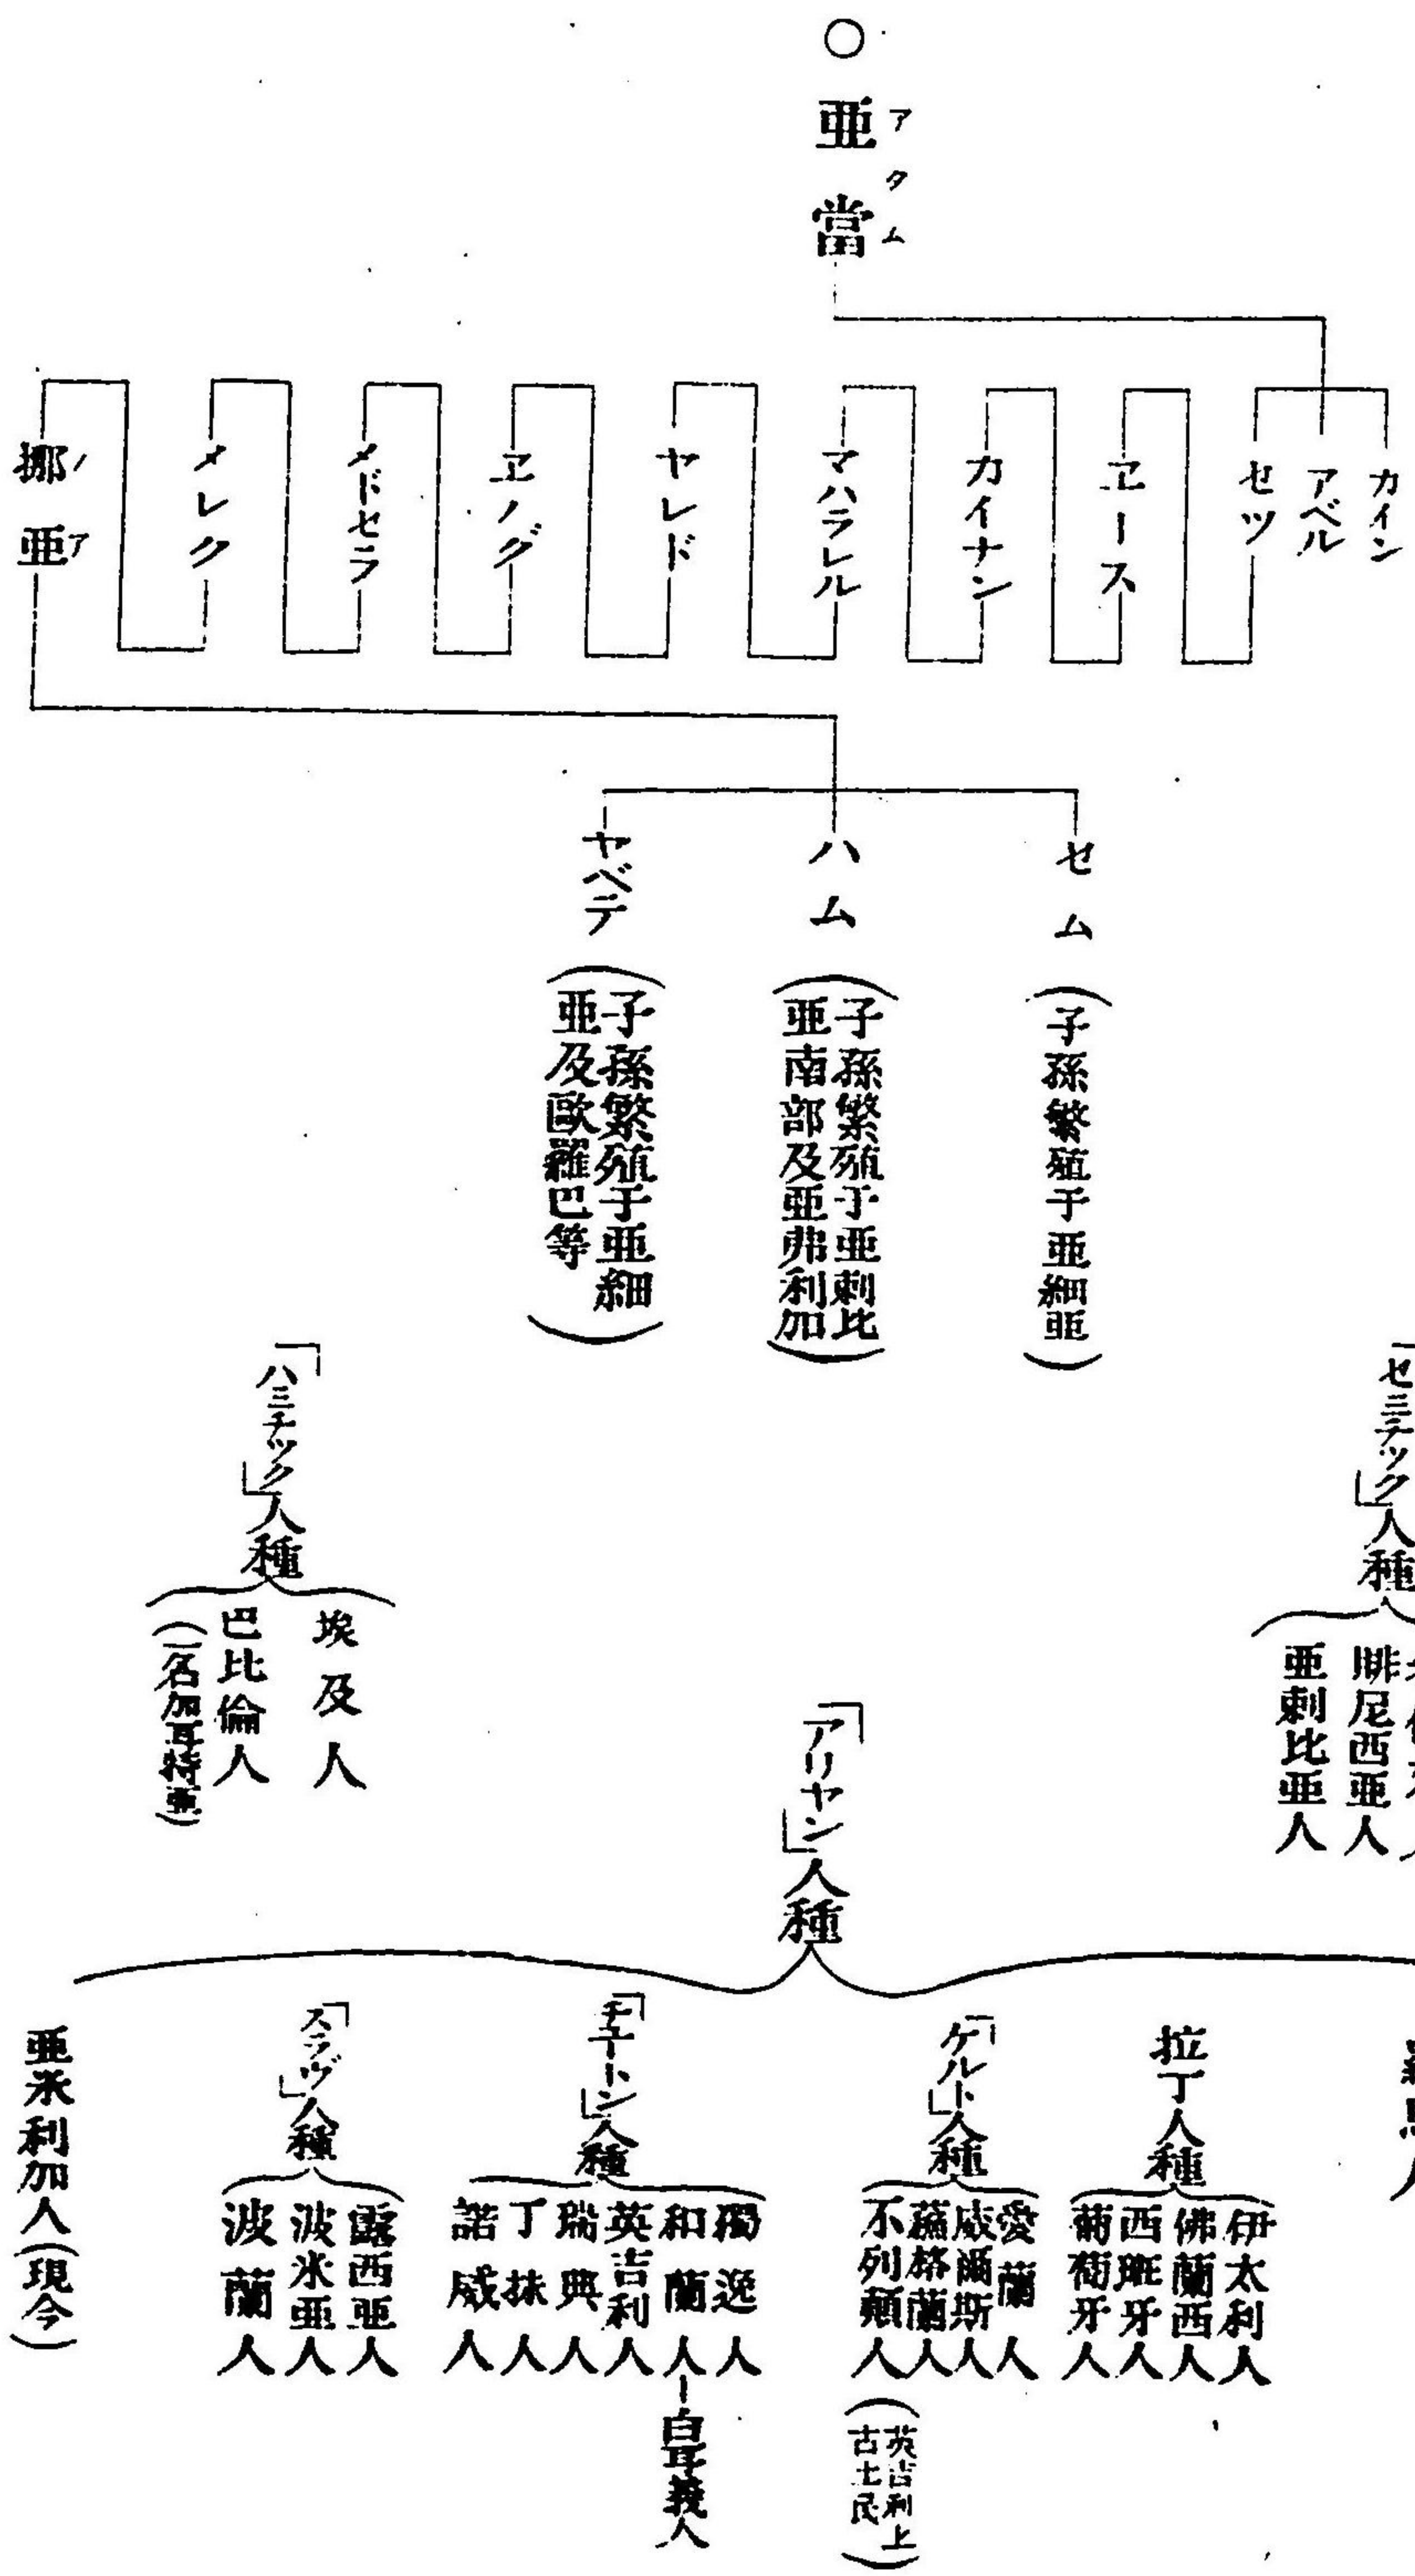 ○亜當
アタム
カイン
アベル
セツ
ヱース
カイナン
マハラレル
ヤレド
ヱノグ
メドセラ
メレク
挪亜
ノア
セム
(子孫繁殖于亜細亜)
ハム
(子孫繁殖于亜剌比
亜南部及亜弗利加)
ヤベテ
(子孫繁殖于亜細
亜及歐羅巴等)
「セミチック」人種
腓尼西亜人
亜剌比亜人
「ハミチック」人種
埃及人
巴比倫人
(一名加耳特亜)
「アリヤン」人種
拉丁人種
伊太利人
佛蘭西人
西班牙人
葡萄牙人
「ケルト」人種
愛蘭人
威爾斯人
蘇格蘭人
不列顛人
(英吉利上
古土民)
「チユートン」人種
獨逸人
和蘭人―白耳義人
英吉利人
瑞典人
丁抹人
諾威人
「スラヴ」人種
露西亜人
波氷亜人
波蘭人
亜米利加人(現今)